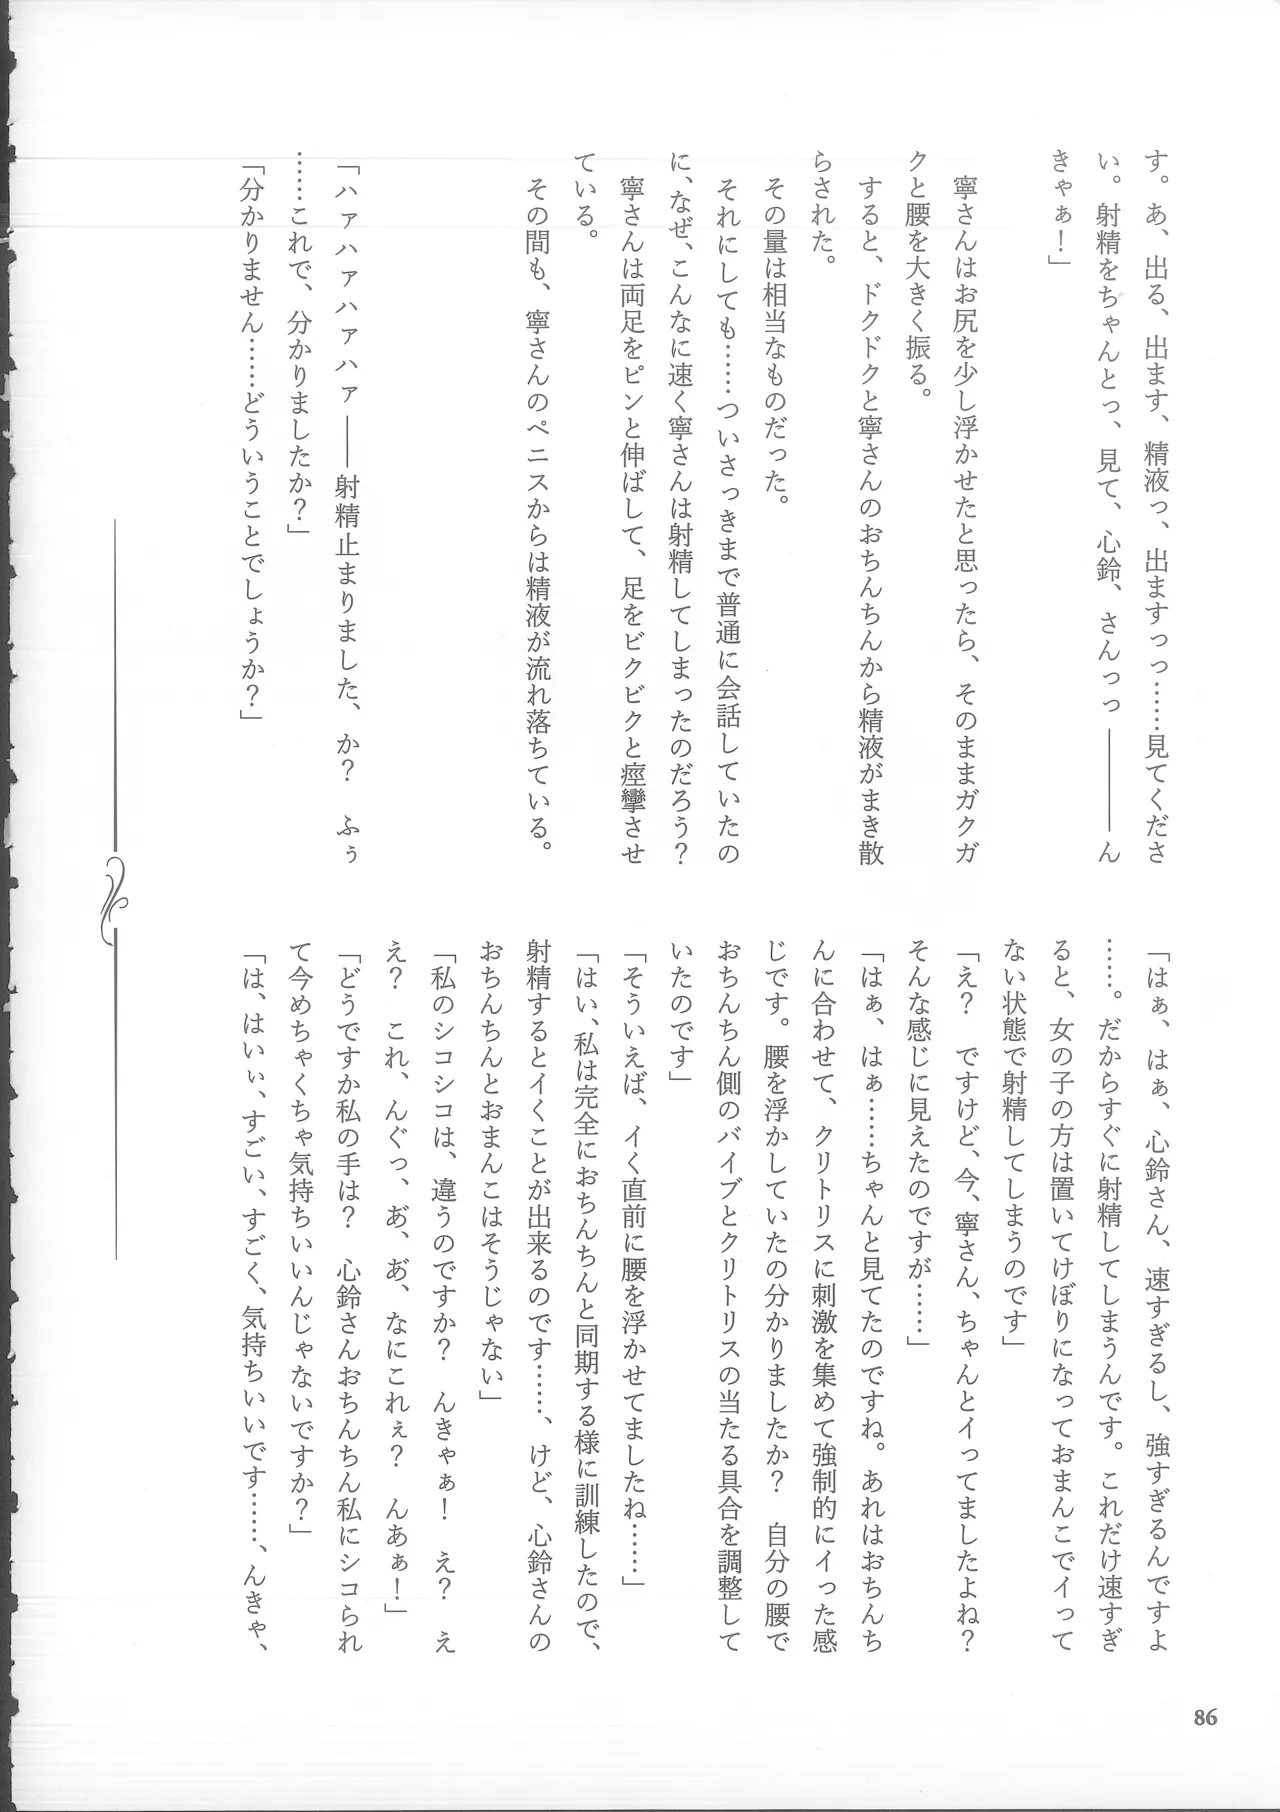 す。あ、出る、出ます、精液っ、出ますっっ……見てくださ
い。射精をちゃんとっ、見て、心鈴、さんっっ――――ん
きゃぁ！」
寧さんはお尻を少し浮かせたと思ったら、そのままガクガ
クと腰を大きく振る。
すると、ドクドクと寧さんのおちんちんから精液がまき散
らされた。
その量は相当なものだった。
それにしても……ついさっきまで普通に会話していたの
に、なぜ、こんなに速く寧さんは射精してしまったのだろう？
寧さんは両足をピンと伸ばして、足をビクビクと痙攣させ
ている。
その間も、寧さんのペニスからは精液が流れ落ちている。
「ハァハァハァハァ――射精止まりました、か？　ふぅ
……これで、分かりましたか？」
「分かりません……どういうことでしょうか？」
「はぁ、はぁ、心鈴さん、速すぎるし、強すぎるんですよ
……。だからすぐに射精してしまうんです。これだけ速すぎ
ると、女の子の方は置いてけぼりになっておまんこでイって
ない状態で射精してしまうのです」
「え？　ですけど、今、寧さん、ちゃんとイってましたよね？
そんな感じに見えたのですが……」
「はぁ、はぁ……ちゃんと見てたのですね。あれはおちんち
んに合わせて、クリトリスに刺激を集めて強制的にイった感
じです。腰を浮かしていたの分かりましたか？　自分の腰で
おちんちん側のバイブとクリトリスの当たる具合を調整して
いたのです」
「そういえば、イく直前に腰を浮かせてましたね……」
「はい、私は完全におちんちんと同期する様に訓練したので、
射精するとイくことが出来るのです……、けど、心鈴さんの
おちんちんとおまんこはそうじゃない」
「私のシコシコは、違うのですか？　んきゃぁ！　え？　え
え？　これ、んぐっ、あ゛、あ゛、なにこれぇ？　んあぁ！」
「どうですか私の手は？　心鈴さんおちんちん私にシコられ
て今めちゃくちゃ気持ちいいんじゃないですか？」
「は、はいぃ、すごい、すごく、気持ちいいです……、んきゃ、
86